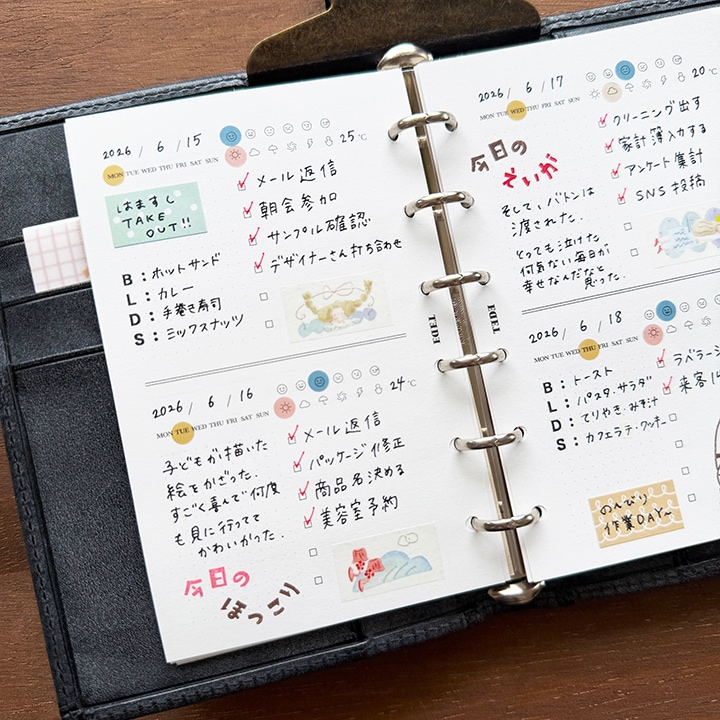 2026 / 6 / 15
MON TUE WED THU FRI SAT SUN
25 ℃
はますし
TAKE
OUT!!
メール返信
朝会参加
サンプル確認
デザイナーさん打ち合わせ
B: ホットサンド
L: カレー
D: 手巻き寿司
S: ミックスナッツ
2026 / 6 / 16
MON TUE WED THU FRI SAT SUN
24 ℃
子どもが描いた
絵をかざった.
すごく喜んで何度
も見に行ってて
かわいかった.
メール返信
パッケージ修正
商品名決める
美容室予約
今日の
ほっこり
2026 / 6 / 17
MON TUE WED THU FRI SAT SUN
20 ℃
今日の
えいが
そして、バトンは
渡された.
とっても泣けた
何気ない毎日が
幸せなんだなと
思った.
クリーニング出す
家計簿入力する
アンケート集計
SNS投稿
TEDE
TEDE
2026 / 6 / 18
MON TUE WED THU FRI SAT SUN
B: トースト
L: パスタ・サラダ
D: てりやき・みそ汁
S: カフェラテ・クッキー
ラベラー
来客
のんびり
作業DAY~